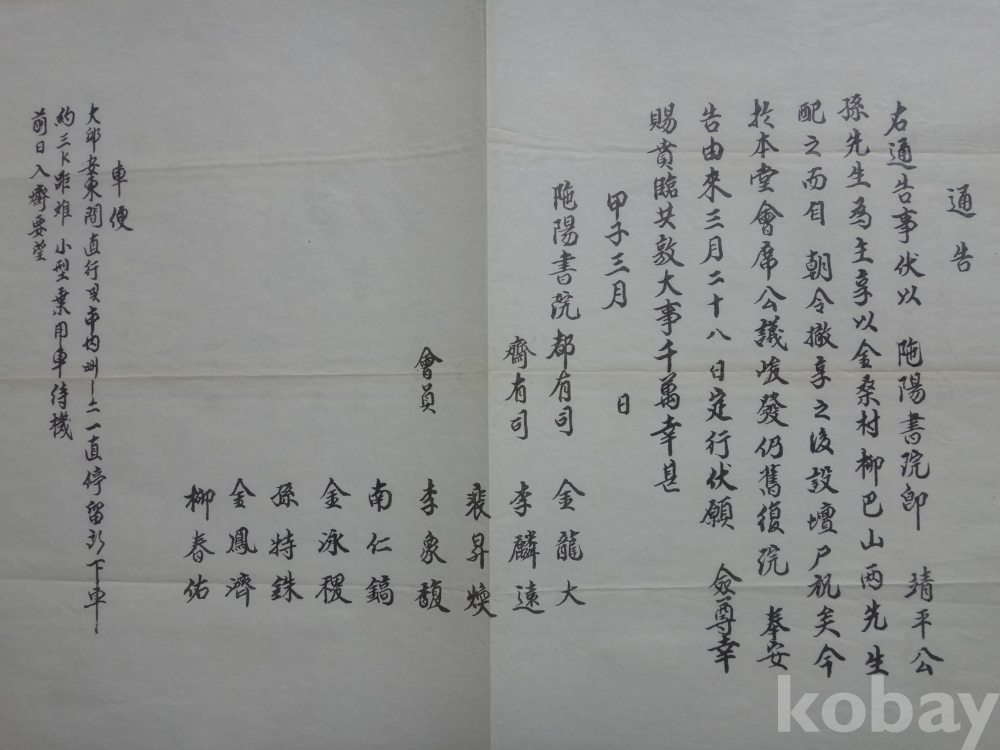 通告
右通告事伏以 陁陽書院卽 靖平公
孫先生爲主享以金桑村柳巴山兩先生
配之而自 朝令撤享之後設壇尸祝矣今
於本堂會席公議峻發仍舊復院 奉安
告由來三月二十八日定行伏願 僉尊幸
賜賁臨共敦大事千萬幸甚
甲子三月 日
陁陽書院都有司 金龍大
齋有司 李麟遠
裵昇煥
會員 李象馥
南仁鎬
金泳稷
孫特銖
金鳳濟
柳春佑
車便
大邱安東間直行 二一直停留所下車
約三K 距離 小型乗用車待機
前日入齋要望
kobay